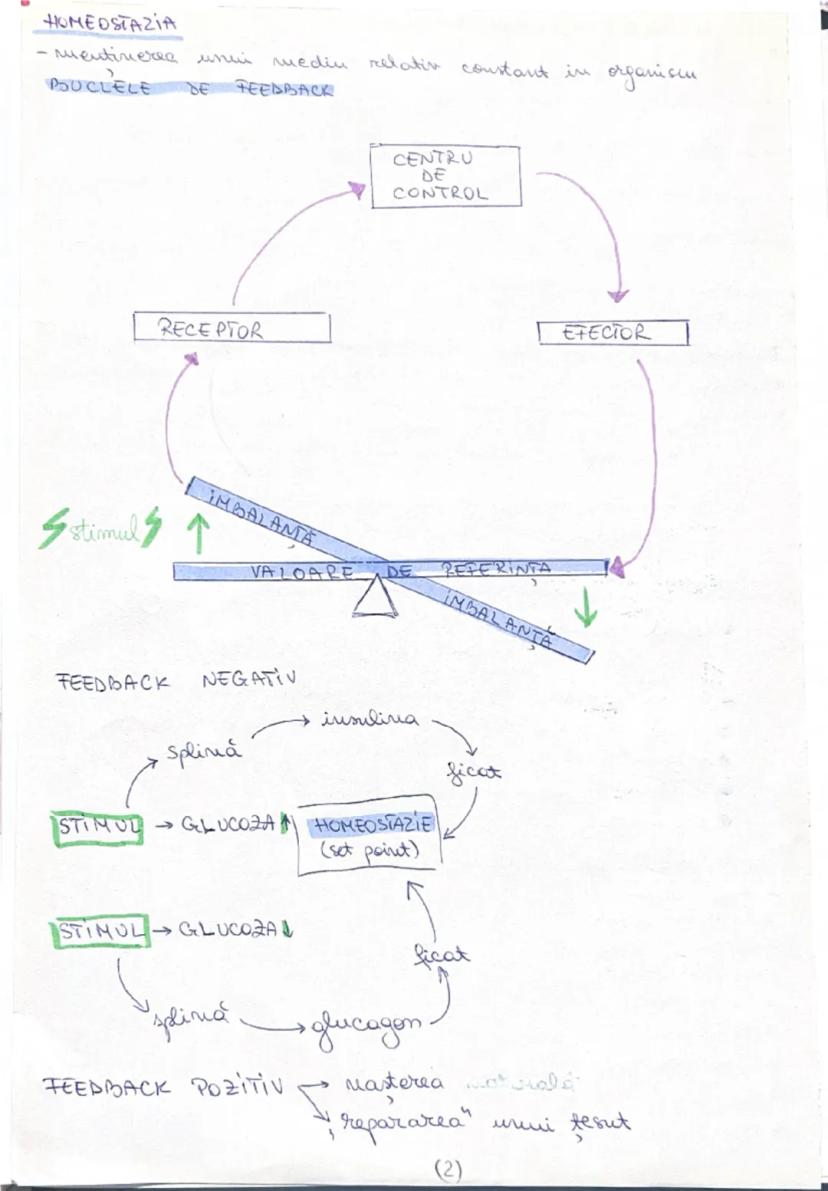 HOMEOSTAZIA
- menținerea unui mediu relativ constant in organism
BUCLELE DE FEEDBACK
CENTRU
DE
CONTROL
RECEPTOR
EFECTOR
stimul
IMBALANȚĂ
VALOARE DE REFERINȚA
IMBALANȚĂ
FEEDBACK NEGATIV
splină → insulina
ficat
STIMUL → GLUCOZA ↑
HOMEOSTAZIE
(set point)
STIMUL → GLUCOZA ↓
ficat
splină → glucagon
FEEDBACK POZITIV → nașterea naturală
"repararea" unui țesut
(2)